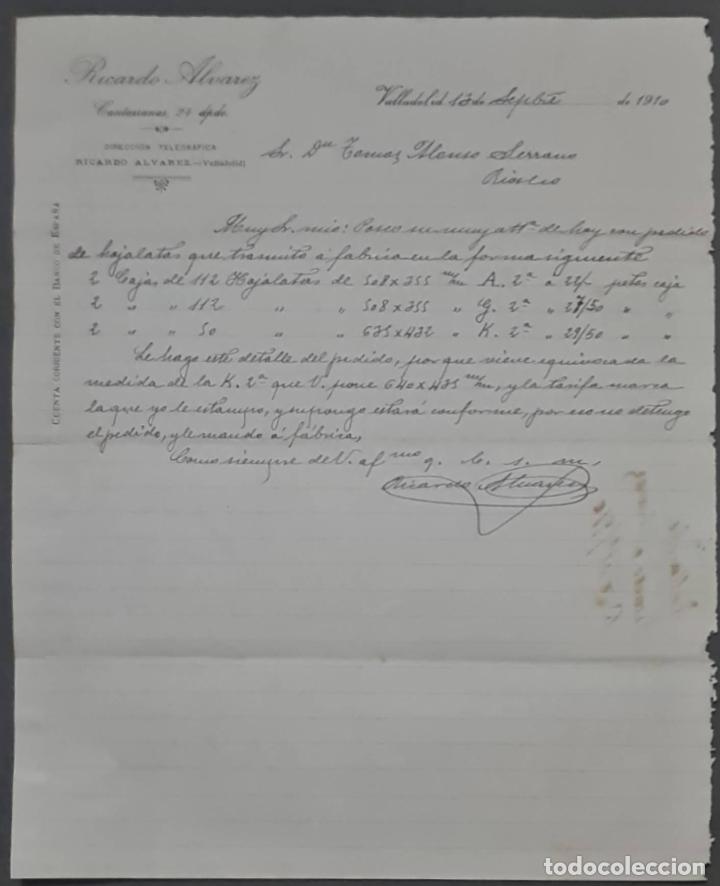 Ricardo Alvarez
Cantarranas, 24 dpdo.
DIRECCIÓN TELEGRÁFICA
RICARDO ALVAREZ.—Valladolid
CUENTA CORRIENTE CON EL BANCO DE ESPAÑA
Valladolid 13 de Sepbre de 1910
Sr. Dn Tomas Alonso Serrano
Rioseco
Muy Sr. mio: Poseo su muy atta. de hoy con pedido
de hojalatas que tramito á fabrica en la forma siguiente
2 Cajas de 112 Hojalatas de 508 x 355 m/m A. 2ª a 22/ ptas caja
2 " " 112 " " 508 x 355 " G. 2ª " 27/50 " "
2 " " 50 " " 635 x 432 " K. 2ª " 29/50 " "
Le hago este detalle del pedido, por que viene equivocada la
medida de la K. 2ª que V. pone 640 x 435 m/m, y la tarifa marca
la que yo le estampo, y supongo estará conforme, por eso no detengo
el pedido, y le mando á fábrica,
Como siempre de V. afmo q. b. s. m,
Ricardo Alvarez
todocoleccion
todocoleccion.net